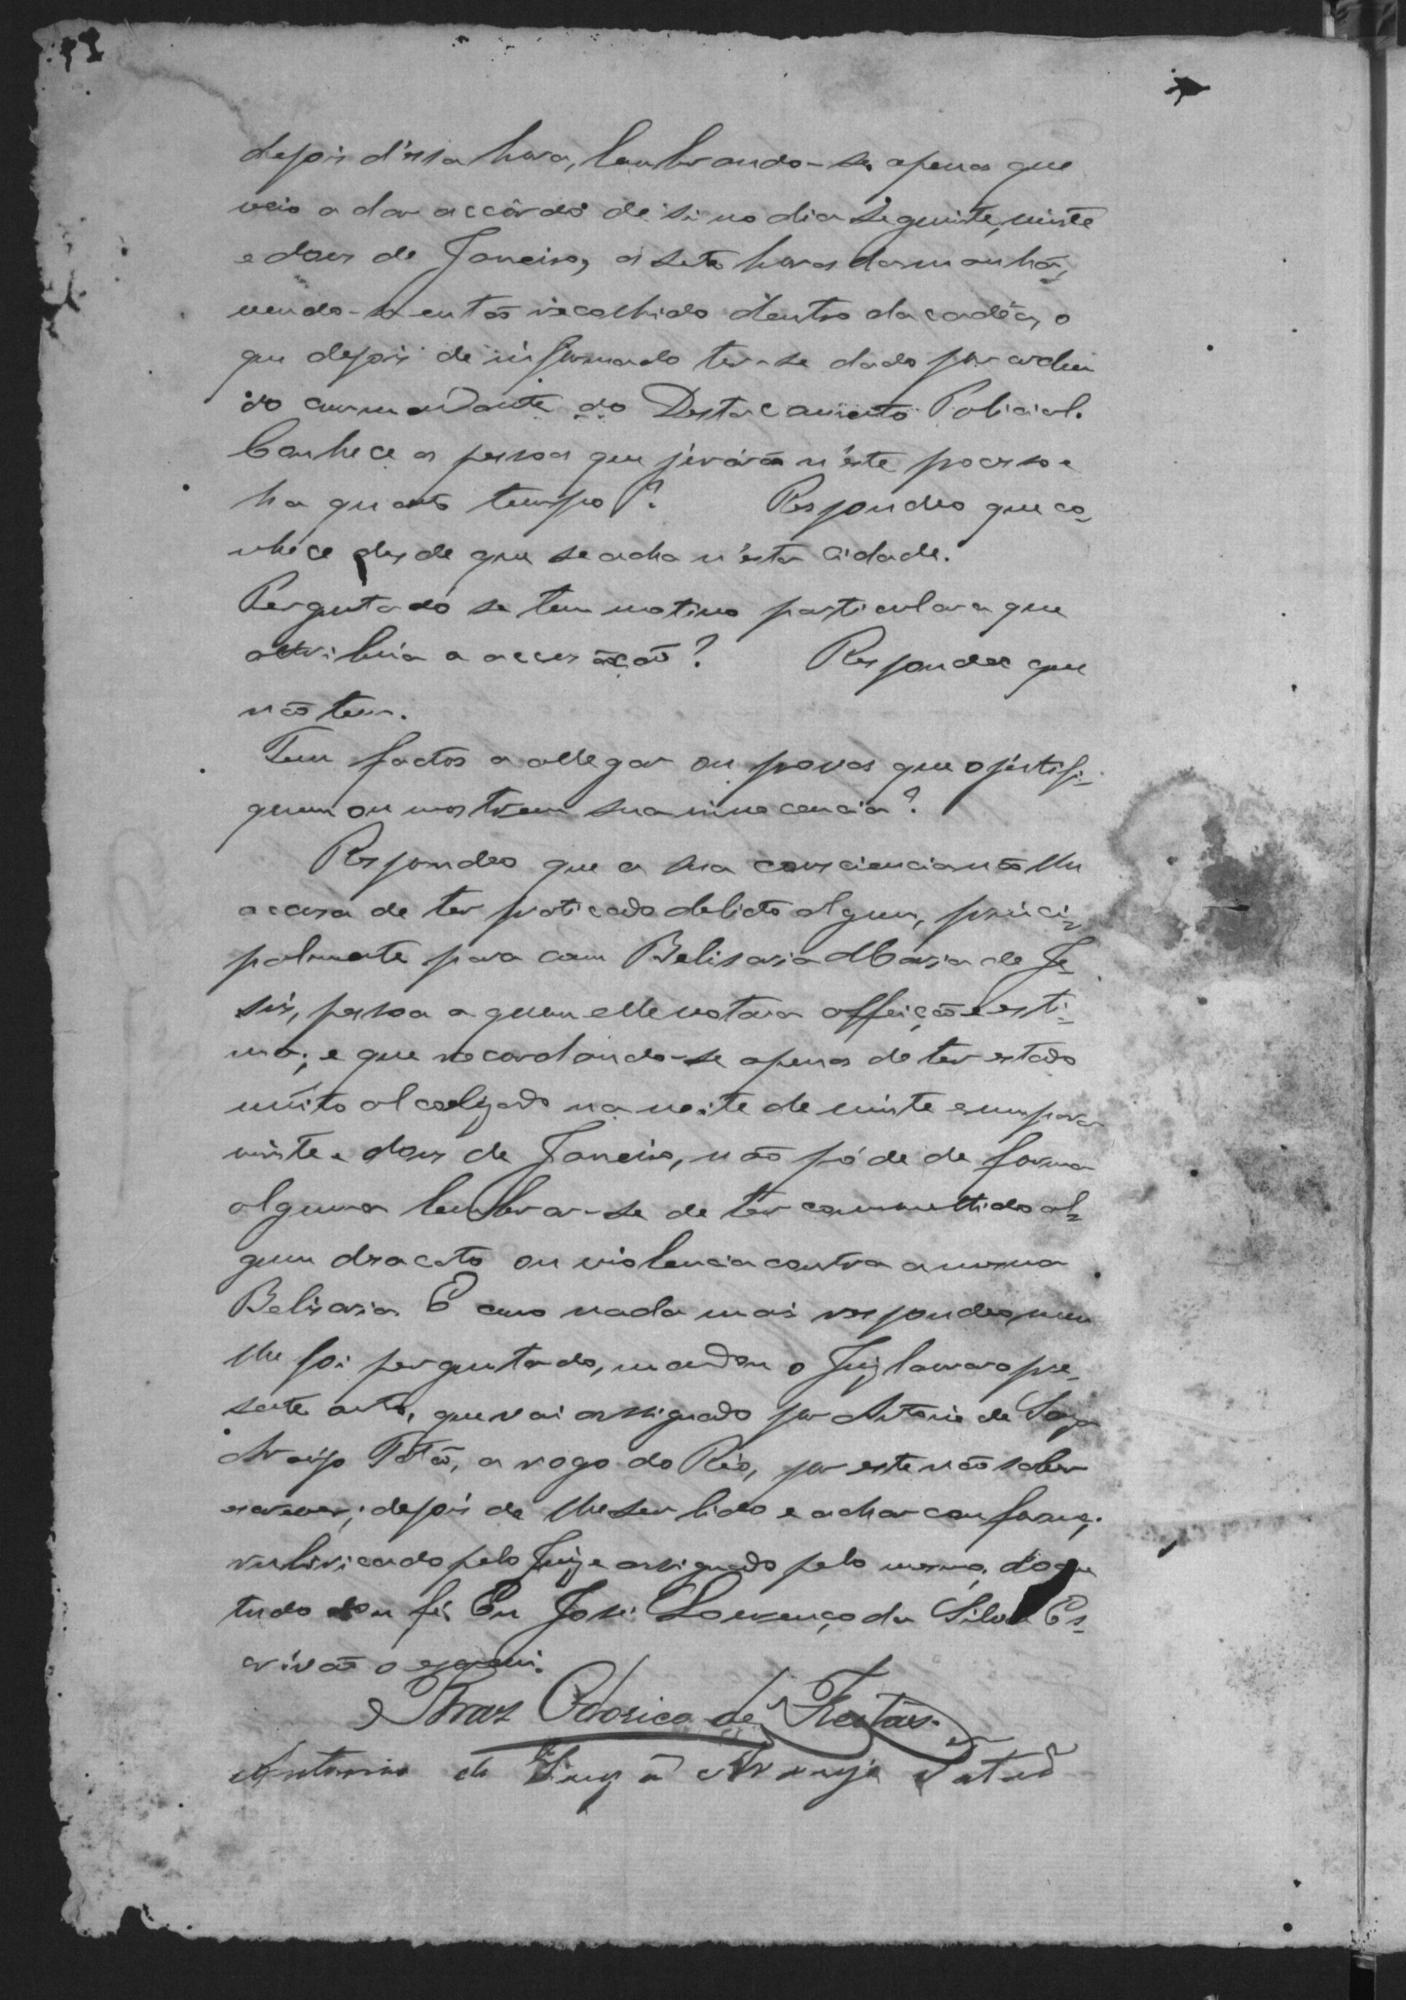 depois d'essa hora, lembrando-se apenas que
veio a dar accôrdo de si no dia seguinte, vinte
e dous de Janeiro, ás sete horas da manhã,
vendo-se então recolhido dentro da cadêa, o
que depois de informado ter-se dado por ordem
do commandante do Destacamento Policial.
Conhece as pessoas que jurárão n'este processo e
ha quanto tempo? Respondeo que co-
nhece desde que se acha n'esta cidade.
Perguntado se tem motivo particular a que
attribúa a accusação? Respondeo que
não tem.
Tem factos a allegar ou provas que o justifi-
quem ou mostrem sua innocencia?
Respondeo que a sua consciencia não lhe
accusa de ter praticado delicto algum, princi-
palmente para com Belisaria Maria de Je-
sús, pessoa a quem elle votava affeição e esti-
ma; e que recordando-se apenas de ter estado
múito alcoolizado na noite de vinte e um para
vinte e dous de Janeiro, não póde de forma
alguma lembrar-se de ter commettido al-
gum desacato ou violencia contra a mesma
Belisaria E como nada mais respondeo, nem
lhe foi perguntado, mandou o Juiz lavrar o pre-
sente auto, que vai assignado por Antonio de Souza
Araújo Tatão, a rogo do Réo, por este não saber
escrever; depois de lhe ser lido e achar conforme,
rubricado pelo Juiz e assignado pelo mesmo, do que
tudo dou fé. Eu José Lourenço da Silva Es-
crivão o escrevi.
Braz Odorico de Freitas.
Antonio de Souza Araujo Tatão